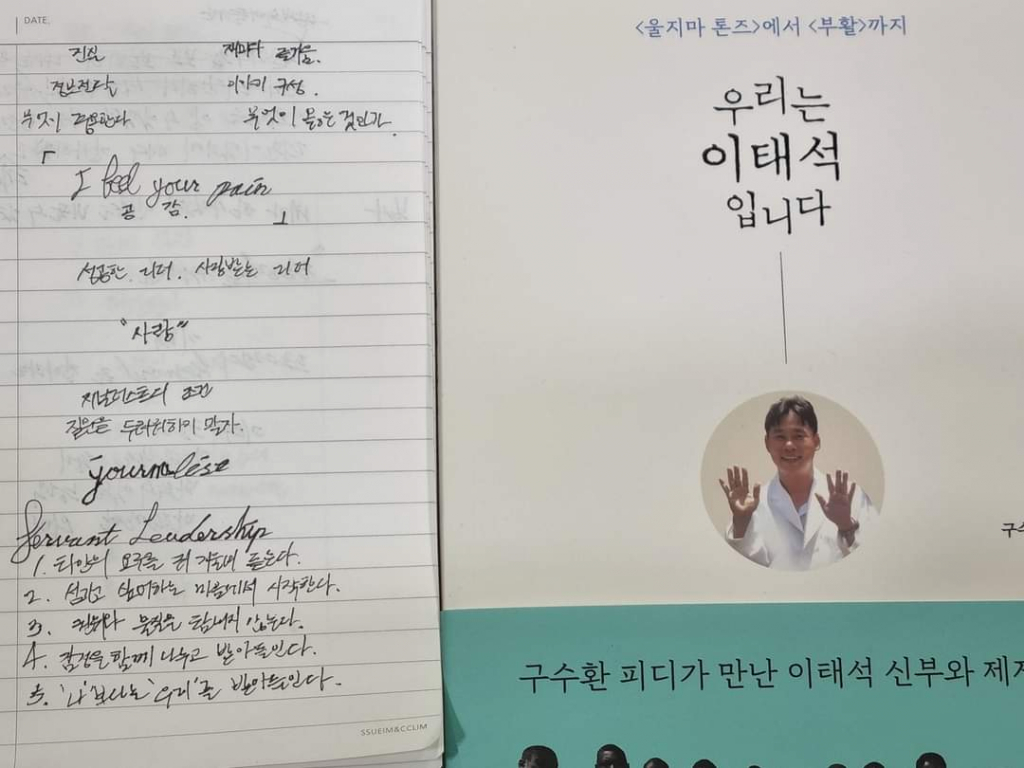 DATE.
진실 재미와 즐거움.
정보전달 이야기 구성.
무엇이 묻는 것인가.
「
I feel your pain
공 감.
」
성공한 리더. 사랑받는 리더
"사랑"
저널리스트의 조건
질문을 두려워하지 말자.
Journalese
Servant Leadership
1. 타인의 요구를 귀 기울여 듣는다.
2. 섬기고 싶어하는 마음에서 시작한다.
3. 권위와 물질을 탐내지 않는다.
4. 감정을 함께 나누고 받아들인다.
5. '나'보다는 '우리'를 받아들인다.
SSUEIM&CCLIM
<울지마 톤즈>에서 <부활>까지
우리는
이태석
입니다
구수
구수환 피디가 만난 이태석 신부와 제